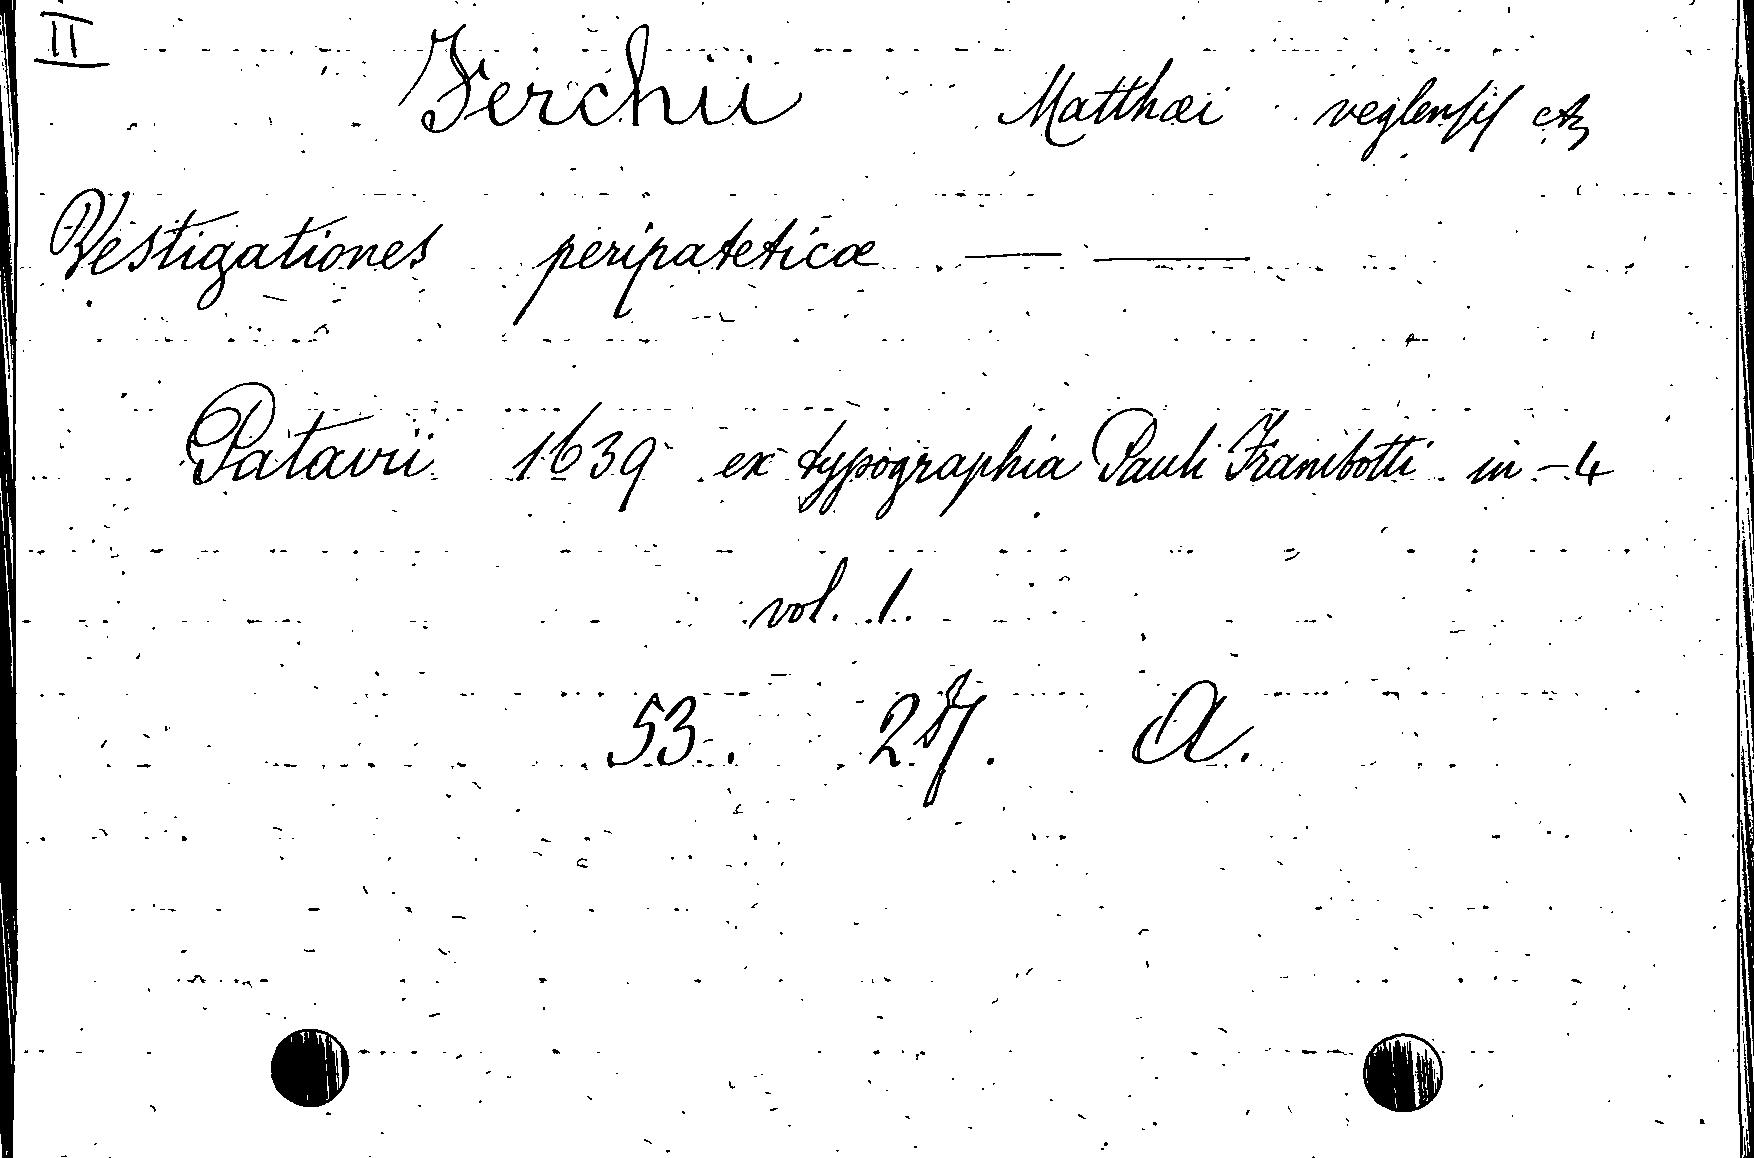 II
Ferchii Matthæi veglensis
Vestigationes peripateticæ — —
Patavii 1639 ex typographia Pauli Frambotti in-4
vol. 1.
53. A.